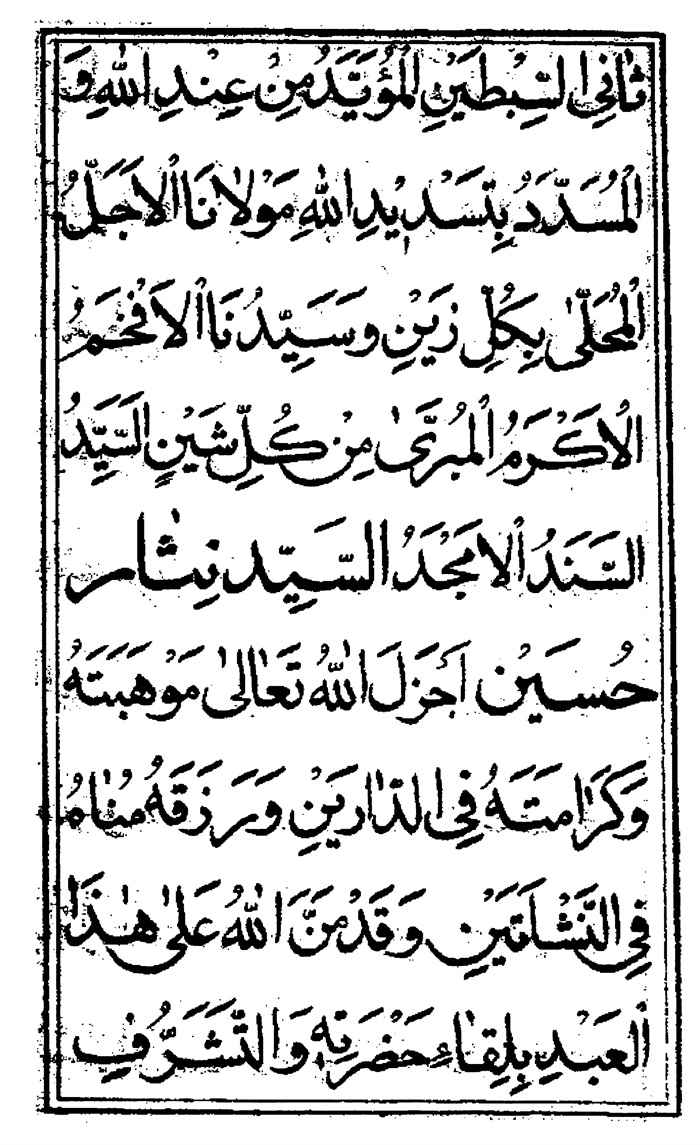 ثَانِي السِّبْطَيْنِ الْمُؤَيَّدُ مِنْ عِنْدِ اللهِ وَ
الْمُسَدَّدُ بِتَسْدِيْدِ اللهِ مَوْلَانَا الْاَجَلُّ
الْمُحَلّٰى بِكُلِّ زَيْنٍ وَسَيِّدُنَا الْاَفْخَمُ
الْاَكْرَمُ الْمُبَرّٰى مِنْ كُلِّ شَيْنٍ السَّيِّدُ
السَّنَدُ الْاَمْجَدُ السَّيِّد نِثَار
حُسَيْن اَجْزَلَ اللهُ تَعَالٰى مَوْهَبَتَهُ
وَكَرَامَتَهُ فِي الدَّارَيْنِ وَرَزَقَهُ مُنَاهُ
فِي النَّشْاَتَيْنِ وَقَدْ مَنَّ اللهُ عَلٰى هٰذَا
الْعَبْدِ بِلِقَاءِ حَضْرَتِهٖ وَالتَّشَرُّفِ